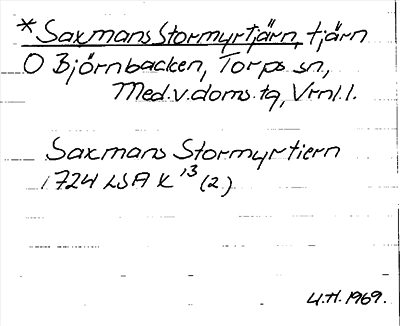 * Saxmans Stormyrtjärn, tjärn
O Björnbacken, Torps sn,
Med.v.doms.tg, Vrnl. l.
Saxmans Stormyrtiern
1724 LSA K 13 (2)
U.H. 1969.